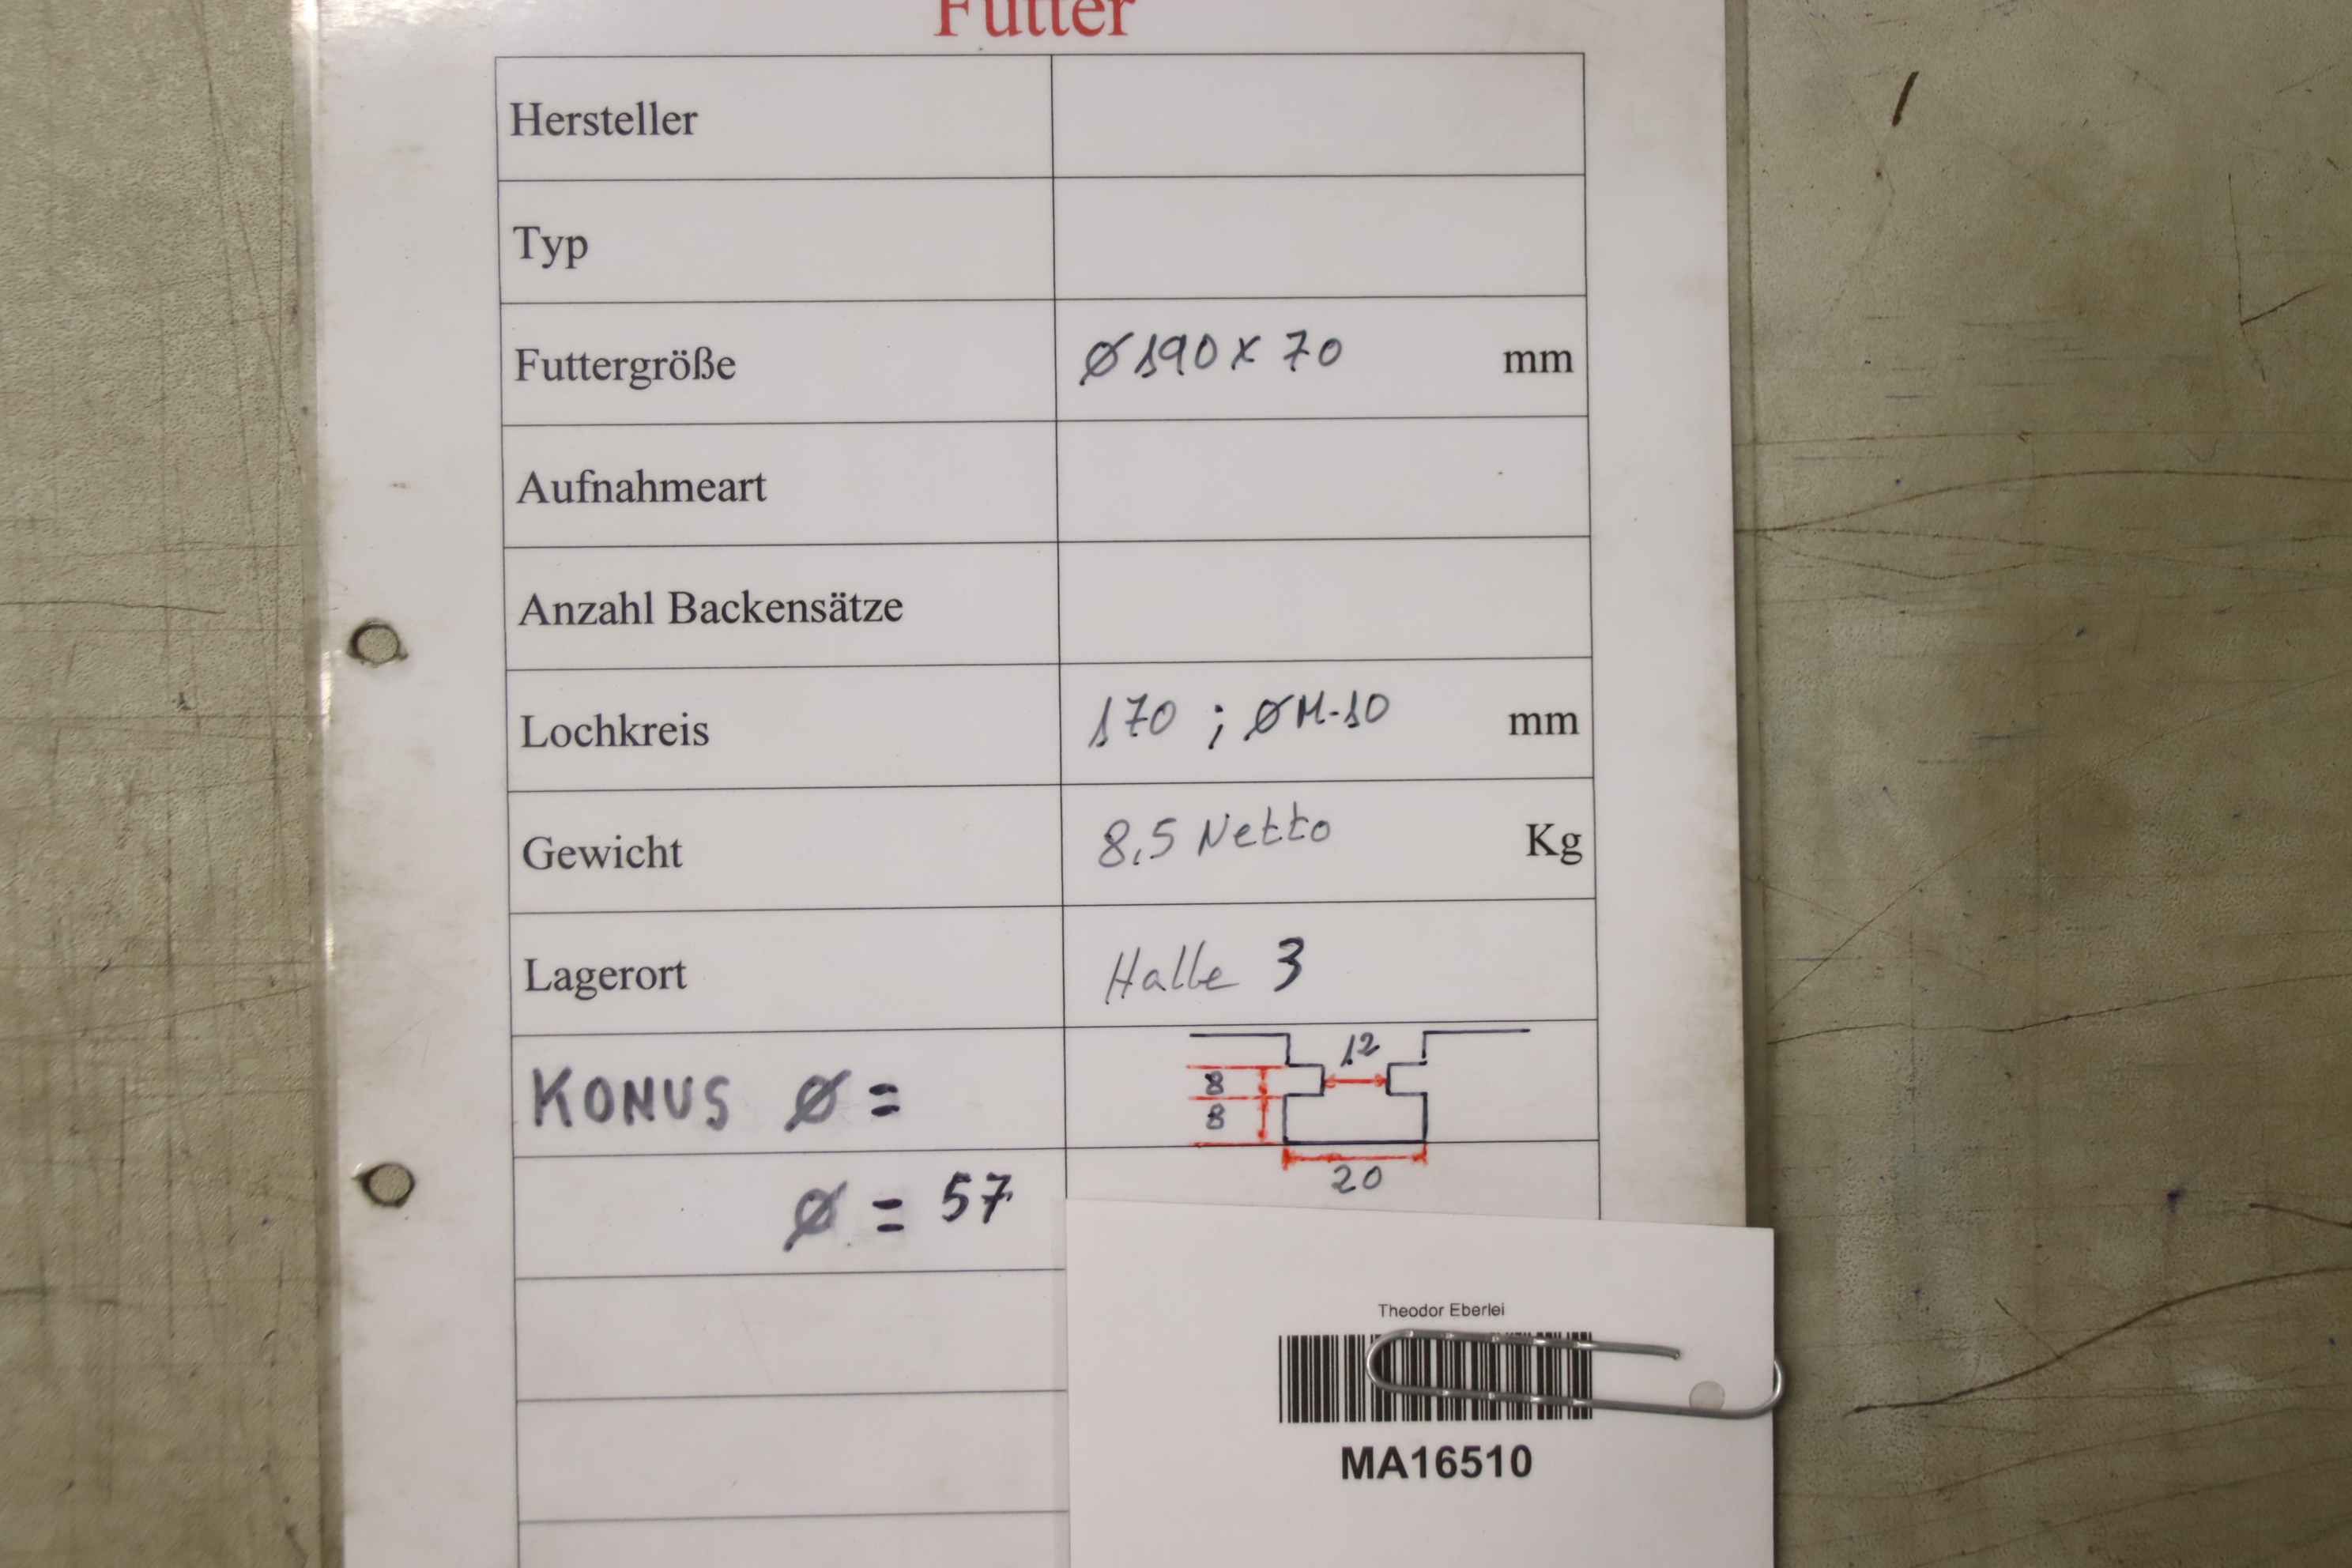 Futter
Hersteller
Typ
Futtergröße ø 190 x 70 mm
Aufnahmeart
Anzahl Backensätze
Lochkreis 170 ; ø M-10 mm
Gewicht 8,5 Netto Kg
Lagerort Halle 3
KONUS ø =
12
8
8
20
ø = 57
Theodor Eberlei
MA16510